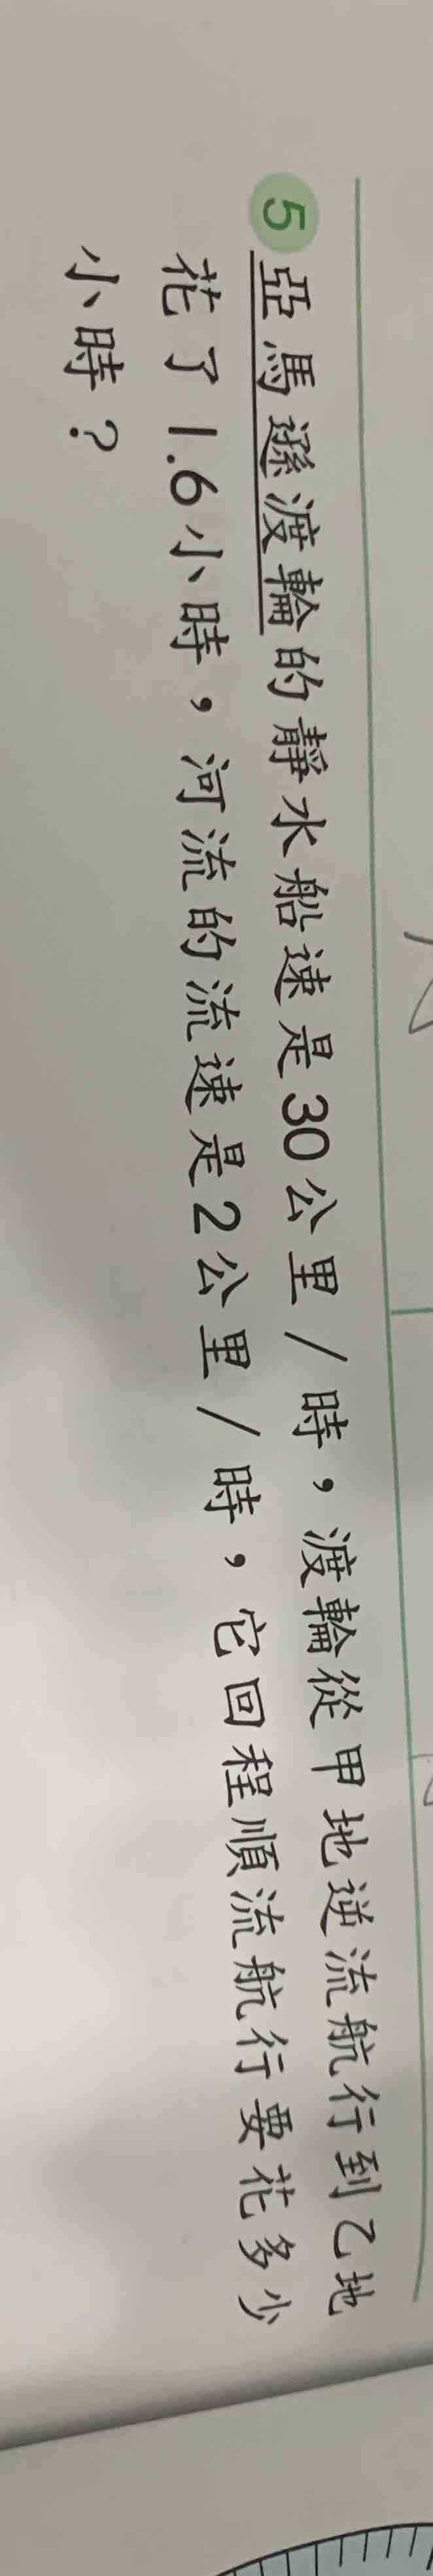 5 亞馬遜渡輪的靜水船速是30公里/時,渡輪從甲地逆流航行到乙地
花了1.6小時,河流的流速是2公里/時,它回程順流航行要花多少
小時?